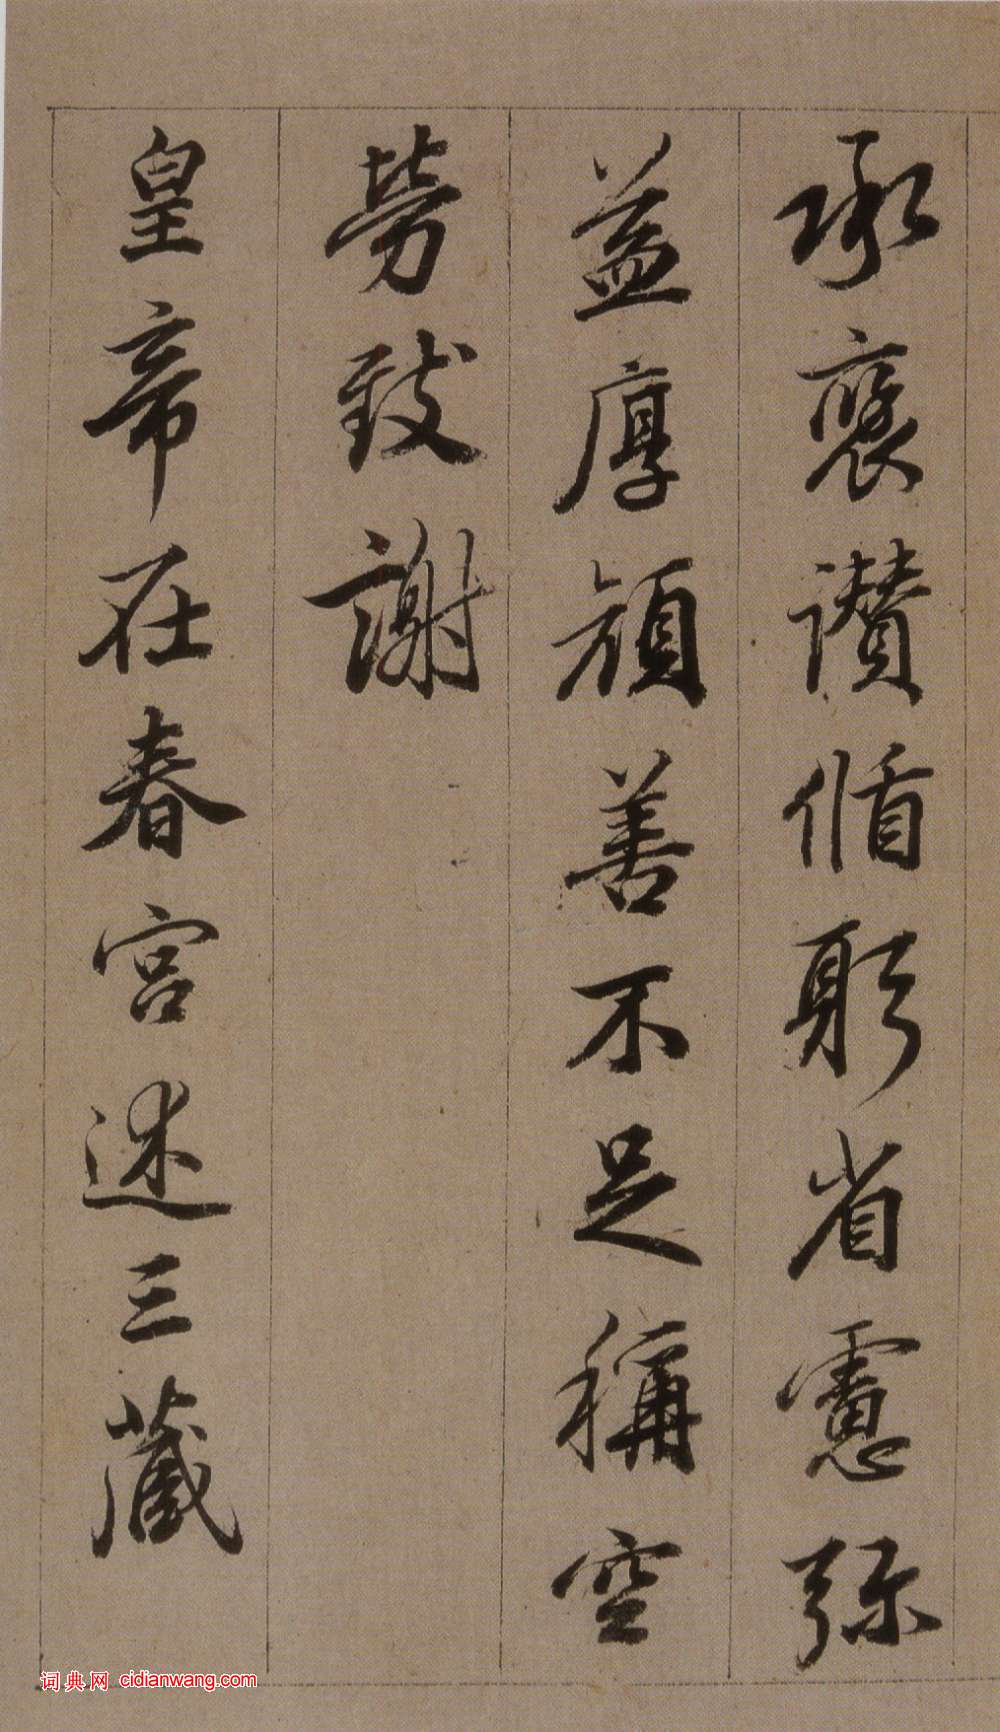 承褒讚循躬省慮弥
益厚顔善不足稱空
勞致謝
皇帝在春宮述三藏
词典网 cidianwang.com